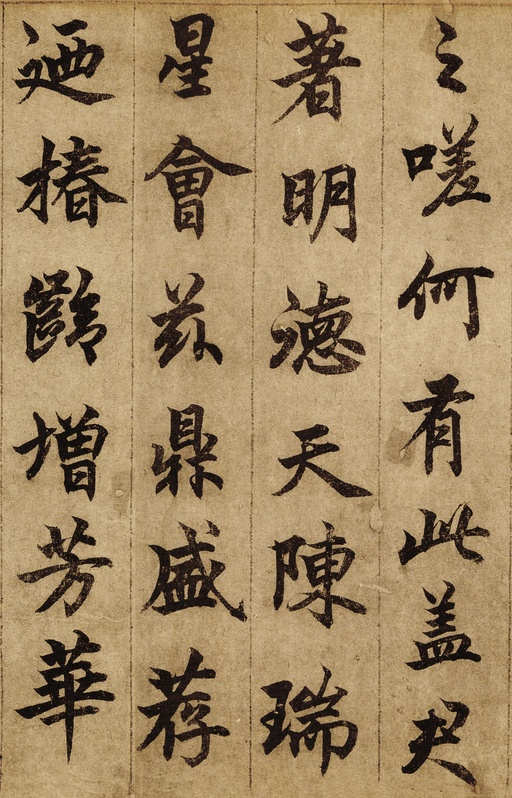 之嗟何有此盖足
著明德天陳瑞
星會茲鼎盛荐
迺椿齡增芳華